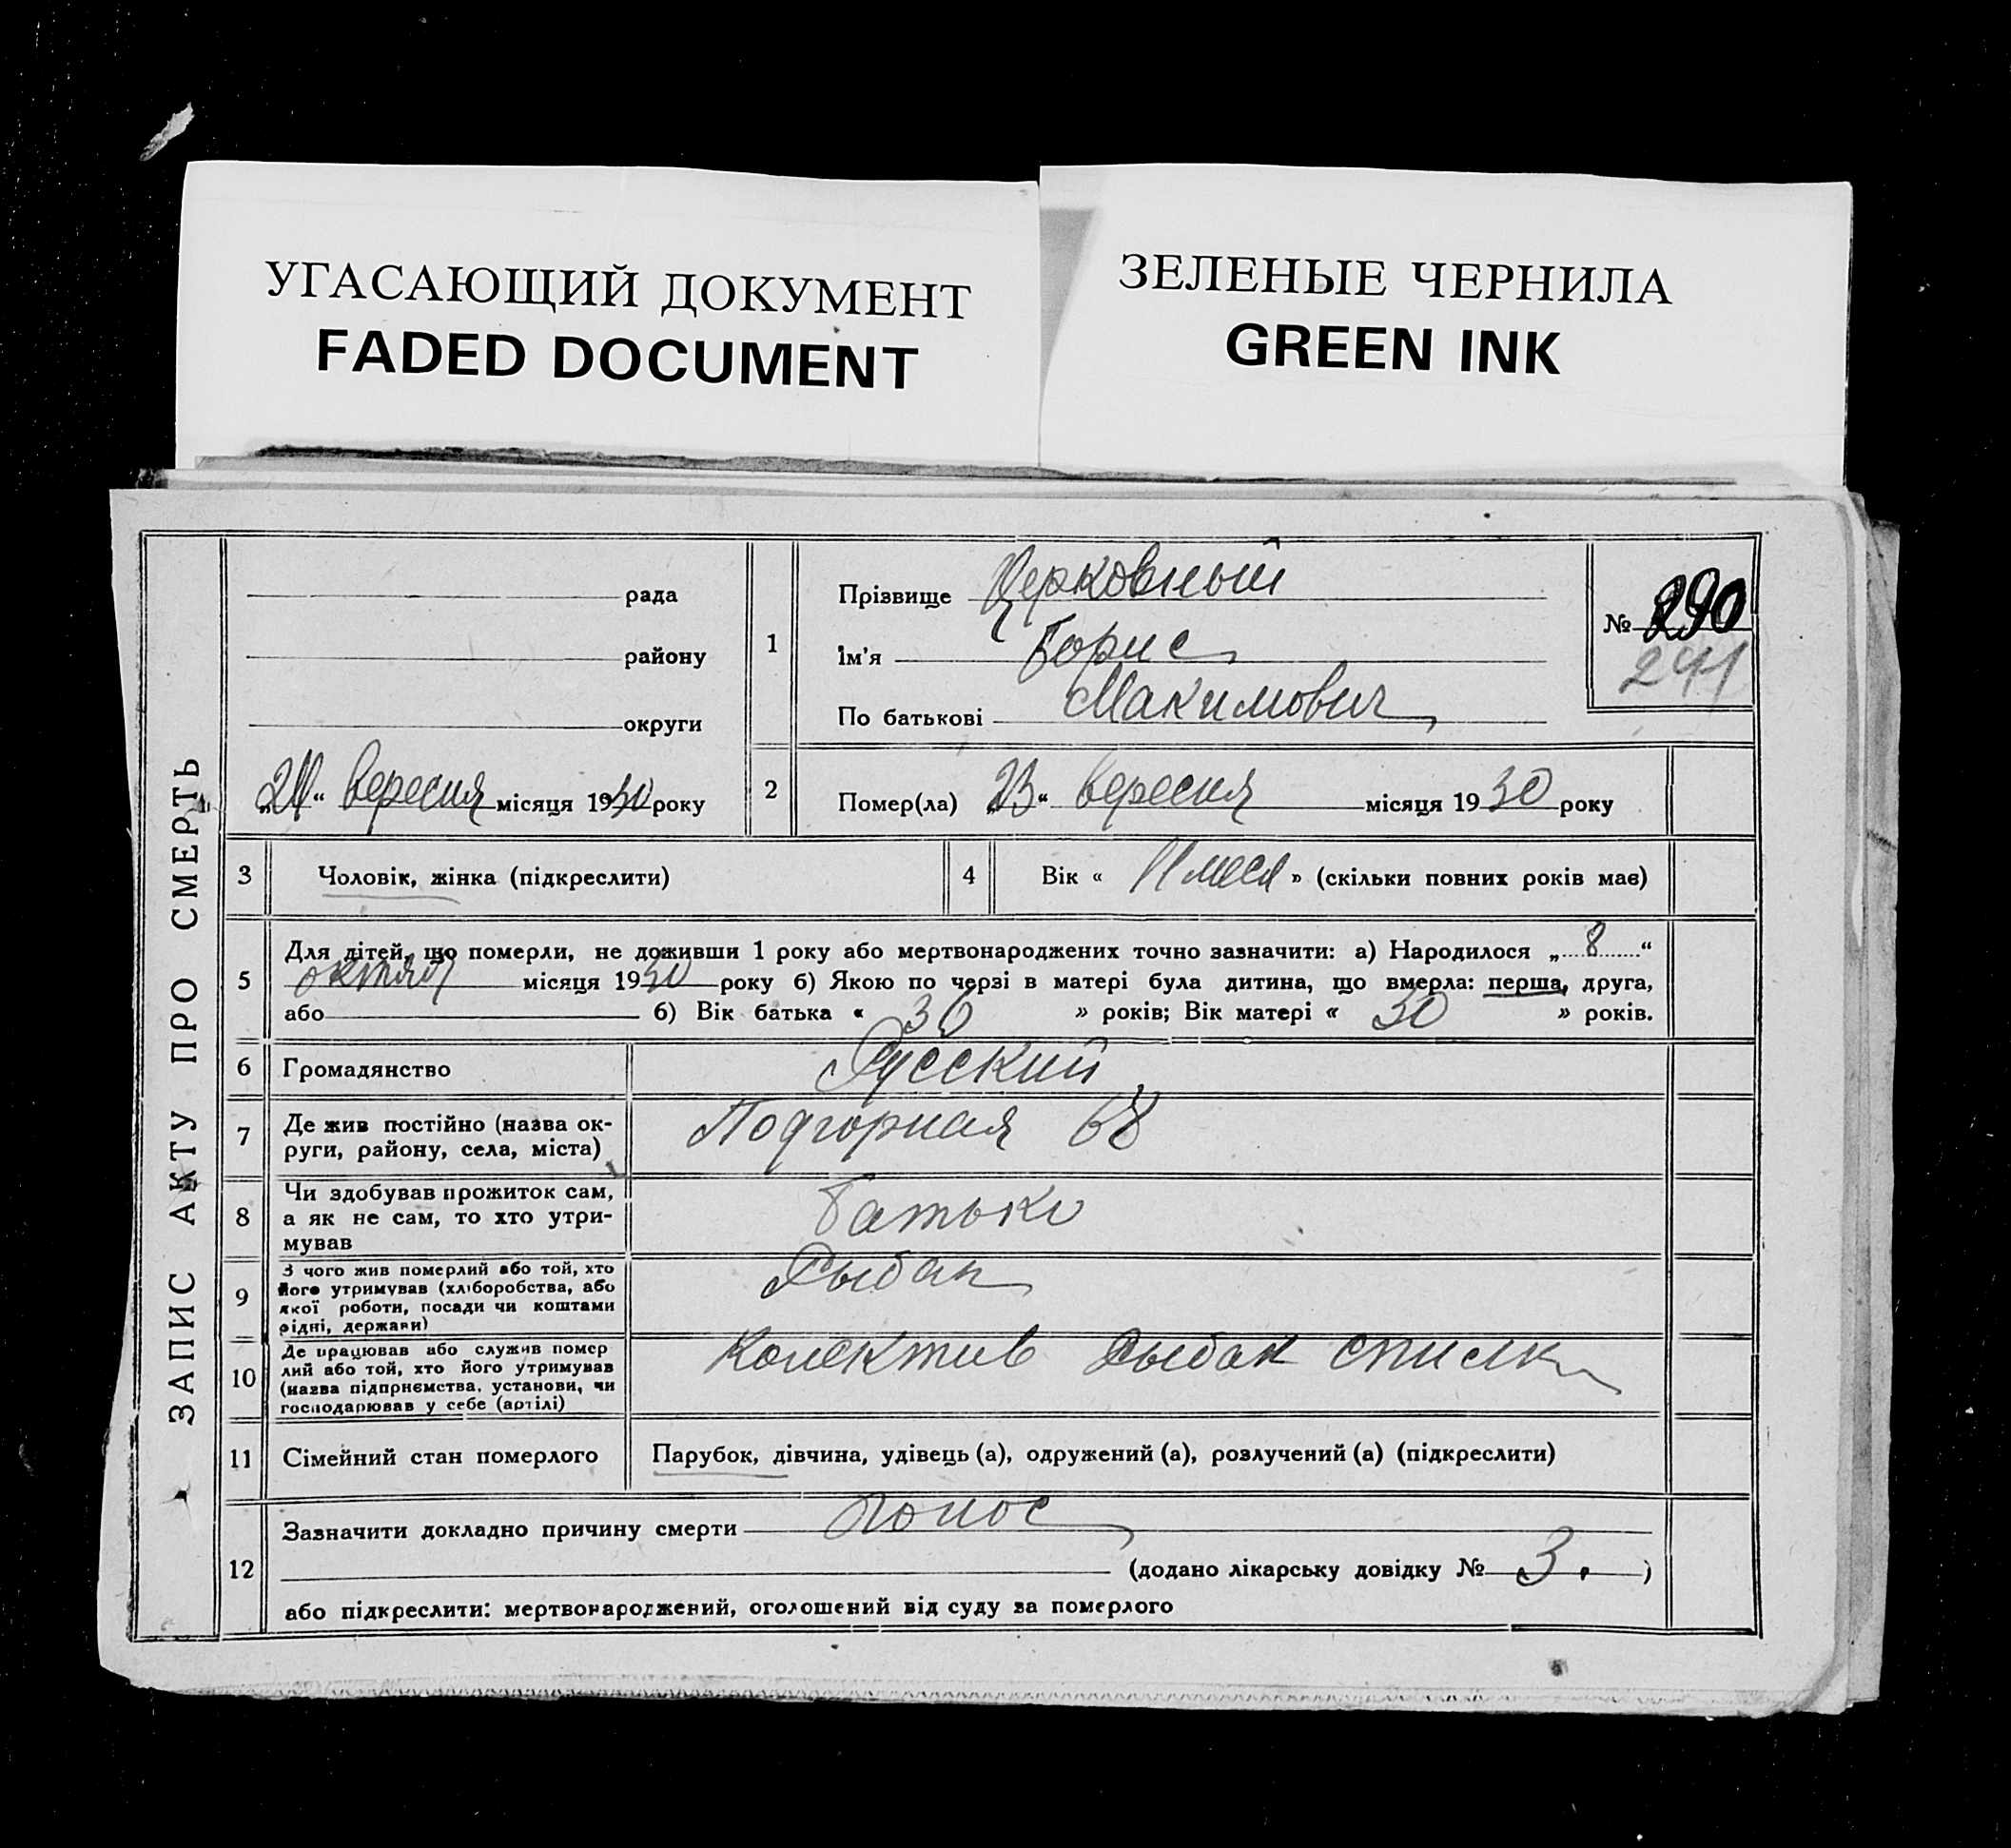 УГАСАЮЩИЙ ДОКУМЕНТ
FADED DOCUMENT
ЗЕЛЕНЫЕ ЧЕРНИЛА
GREEN INK
ЗАПИС АКТУ ПРО СМЕРТЬ
рада
району
округи
вересня місяця 1930 року
1
Прізвище Церковный
Ім'я Борис
По батькові Макимович
№ 290
241
2
Помер(ла) „23“ вересня місяця 1930 року
3
Чоловік, жінка (підкреслити)
4
Вік « 11 меся » (скільки повних років має)
5
Для дітей, що померли, не доживши 1 року або мертвонароджених точно зазначити: а) Народилося „8“
октяб місяця 1930 року б) Якою по черзі в матері була дитина, що вмерла: перша, друга,
або б) Вік батька « 36 » років; Вік матері « 30 » років.
6
Громадянство
Русский
7
Де жив постійно (назва ок-
руги, району, села, міста)
Подгорная 68
8
Чи здобував прожиток сам,
а як не сам, то хто утри-
мував
Батько
9
З чого жив померлий або той, хто
його утримував (хліборобства, або
якої роботи, посади чи коштами
рідні, держави)
Рыбак
10
Де працював або служив помер
лий або той, хто його утримував
(назва підприємства, установи, чи
господарював у себе (артілі)
Колектив Рыбак спилк
11
Сімейний стан померлого
Парубок, дівчина, удівець (а), одружений (а), розлучений (а) (підкреслити)
12
Зазначити докладно причину смерти понос
(додано лікарську довідку № 3. )
або підкреслити: мертвонароджений, оголошений від суду за померлого